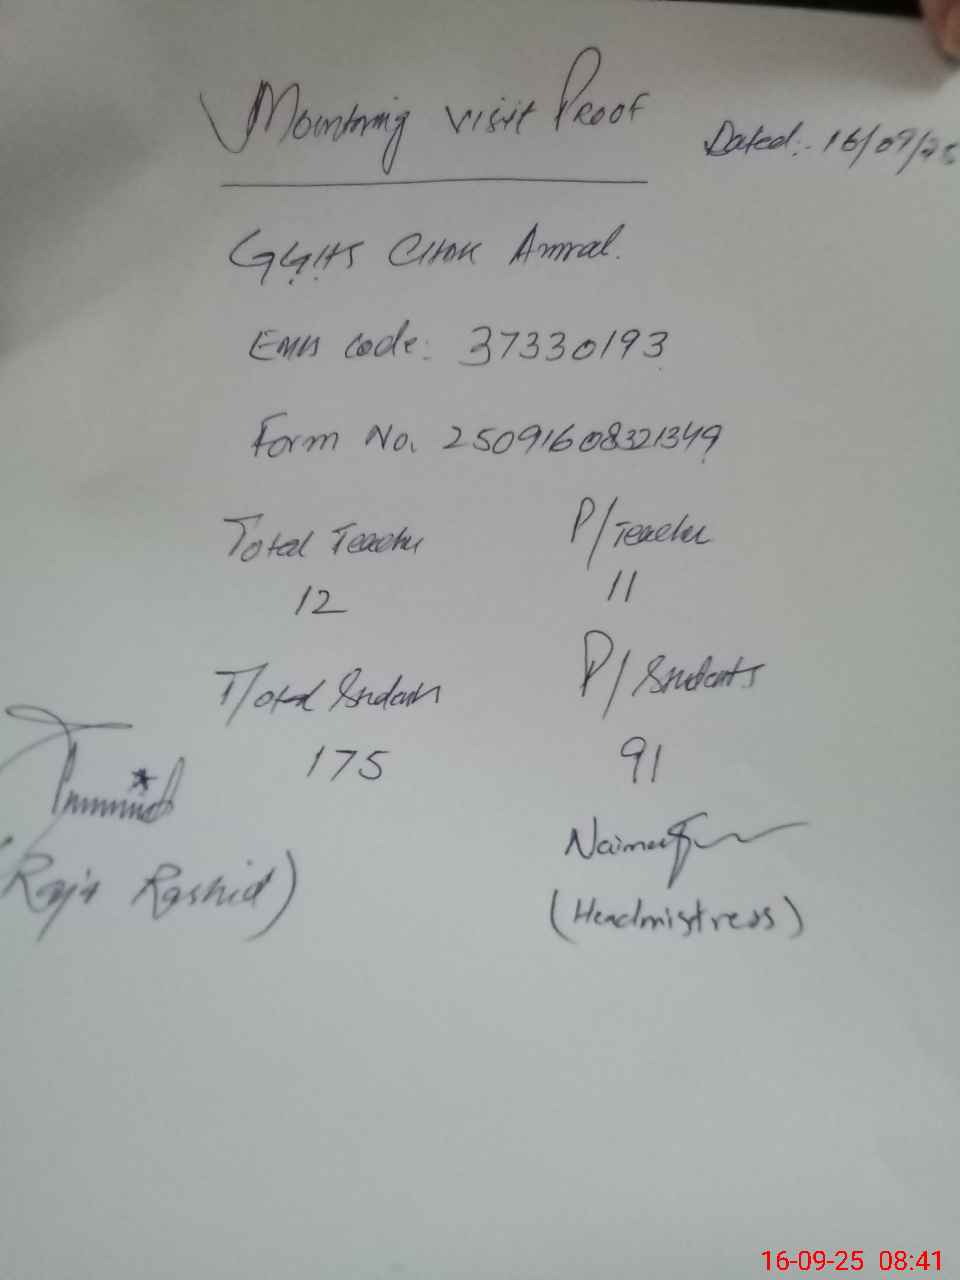 Monitoring Visit Proof
Dated:- 16/09/25
GGHS Chak Amral.
EMIS code: 37330193
Form No. 25091608321349
Total Teacher P/Teacher
12 11
T/otal Students P/Students
175 91
(Raja Rashid)
(Headmistress)
16-09-25 08:41